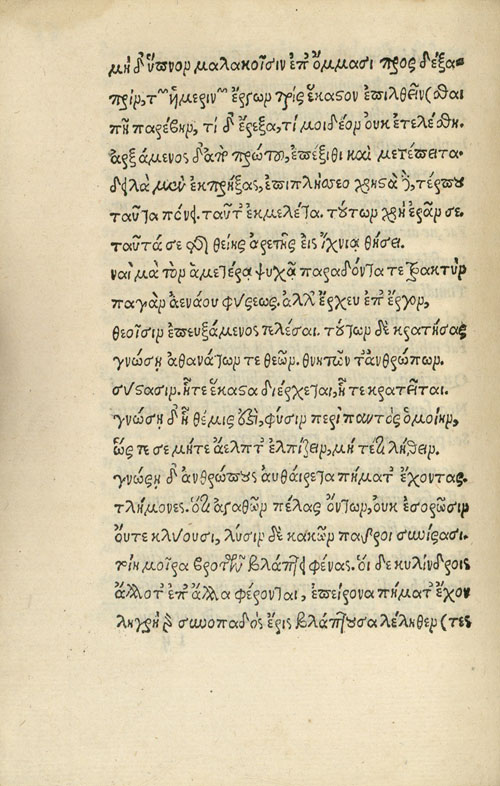 μὴ δ' ὕπνον μαλακοῖσιν ἐπ' ὄμμασι προς δέξα=
πρίν, τῶν ἡμερινῶν ἔργων τρὶς ἕκαστον ἐπελθεῖν (σθαι
πῆ παρέβην, τί δ' ἔρεξα, τί μοι δέον ουκ ετελέσθη.
αρξάμενος δ' απὸ πρώτου, ἐπέξιθι καὶ μετέπειτα.
δειλὰ μὲν ἐκπρήξας, ἐπιπλήσσεο χρηστὰ δὲ, τέρπου
ταῦτα πόνει. ταῦτ' ἐκμελέτα. τούτων χρὴ ἐρᾶν σε.
ταῦτά σε τῆς θείης ἀρετῆς εἰς ἴχνια θήσει.
ναὶ μὰ τὸν ἁμετέρα ψυχᾷ παραδόντα τετρακτὺν
παγὰν αενάου φύσεως. ἀλλ' ἔρχευ ἐπ' ἔργον,
θεοῖσιν ἐπευξάμενος τελέσαι. τούτων δὲ κρατήσας
γνώσῃ αθανάτων τε θεῶν. θνητῶν τ' ἀνθρώπων.
σύστασιν. ᾗτε ἕκαστα διέρχεται, ᾗ τε κρατεῖται.
γνώσῃ δ' ᾗ θέμις ἐστὶ, φύσιν περὶ παντὸς ὁμοίην,
ὥς τε σε μήτε ἄελπτ' ἐλπίζειν, μή τε τι λήθειν.
γνώσῃ δ' ἀνθρώπους αυθαίρετα πήματ' ἔχοντας.
τλήμονες. ὅι τε αγαθῶν πέλας ὄντων, ουκ εσορῶσιν
ὄυτε κλύουσι, λύσιν δὲ κακῶν παῦροι συνίσασι.
τοίη μοῖρα βροτῶν βλάπτει φρένας. ὅι δε κυλίνδροις
ἄλλοτ' ἐπ' ἄλλα φέρονται, ἀπείρονα πήματ' ἔχον
λυγρὴ γὰρ συνοπαδὸς ἔρις βλάπτουσα λέληθεν (τες